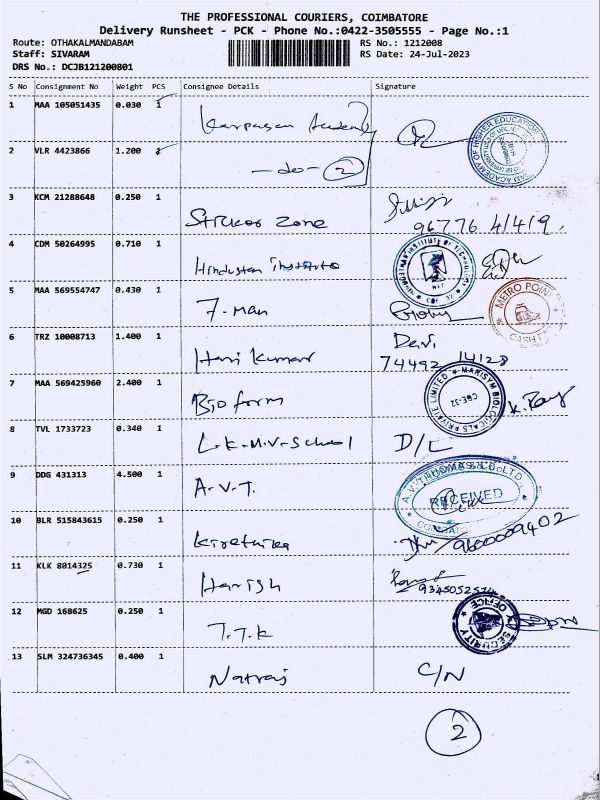 THE PROFESSIONAL COURIERS, COIMBATORE
Delivery Runsheet - PCK - Phone No.:0422-3505555 - Page No.:1
Route: OTHAKALMANDABAM RS No.: 1212008
Staff: SIVARAM RS Date: 24-Jul-2023
DRS No.: DCJB121200801
S No Consignment No Weight PCS Consignee Details Signature
1 MAA 105051435 0.030 1
Karpagam Academy
2 VLR 4423866 1.200
-do- 2
ACADEMY OF HIGHER EDUCATION
3 KCM 21288648 0.250 1
Sticker Zone 96776 41419.
4 CDM 50264995 0.710 1
Hindustan Institute
HINDUSTHAN INSTITUTE OF TECHNOLOGY
HIT
5 MAA 569554747 0.430 1
7-Man
METRO POINT
CASH
6 TRZ 10008713 1.400 1 Devi
Hari Kumar 74492 14128
7 MAA 569425960 2.400 1
Bio form
MARISYM BIOLOGICALS PRIVATE LIMITED
CBE-32
8 TVL 1733723 0.340 1
L.K.M.V-School D/L
9 DDG 431313 4.500 1
A.V.T.
A.V. THOMAS & CO LTD
RECEIVED
10 BLR 515843615 0.250 1
Kirethika 9600009402
11 KLK 8014325 0.730 1
Harish 9345052574
12 MGD 168625 0.250 1
T.T.K
SECURITY OFFICE
13 SLM 324736345 0.400 1
Natraj C/N
2